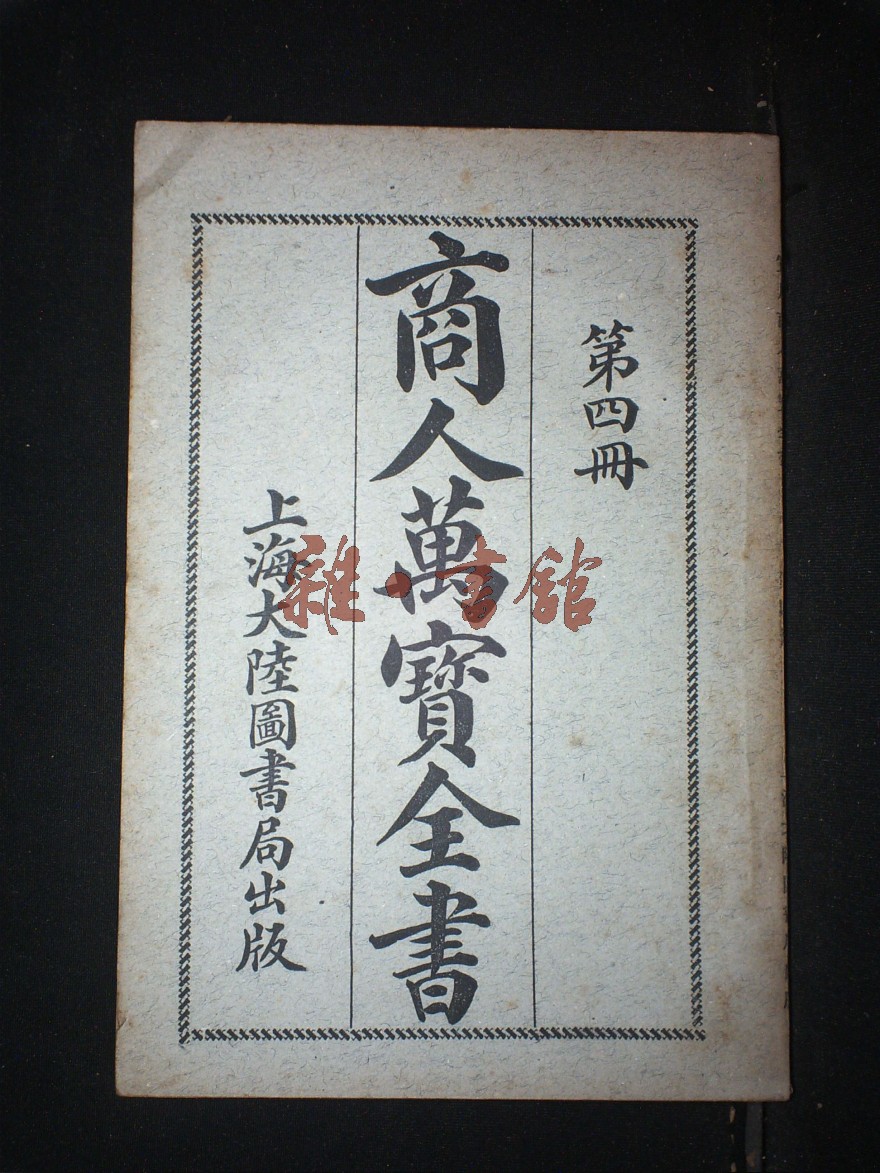 第四冊
商人萬寳全書
上海大陸圖書局出版
雜·書館